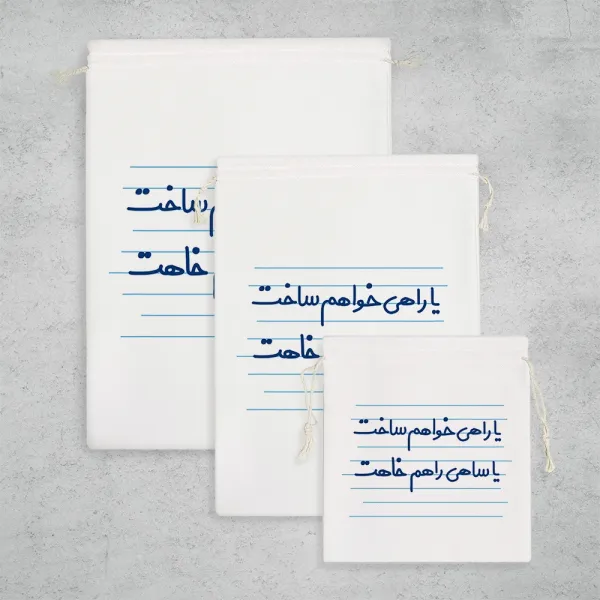 ساخت
خاهت
یا راهی خواهم ساخت
خاهت
یا راهی خواهم ساخت
یا ساهی راهم خاهت